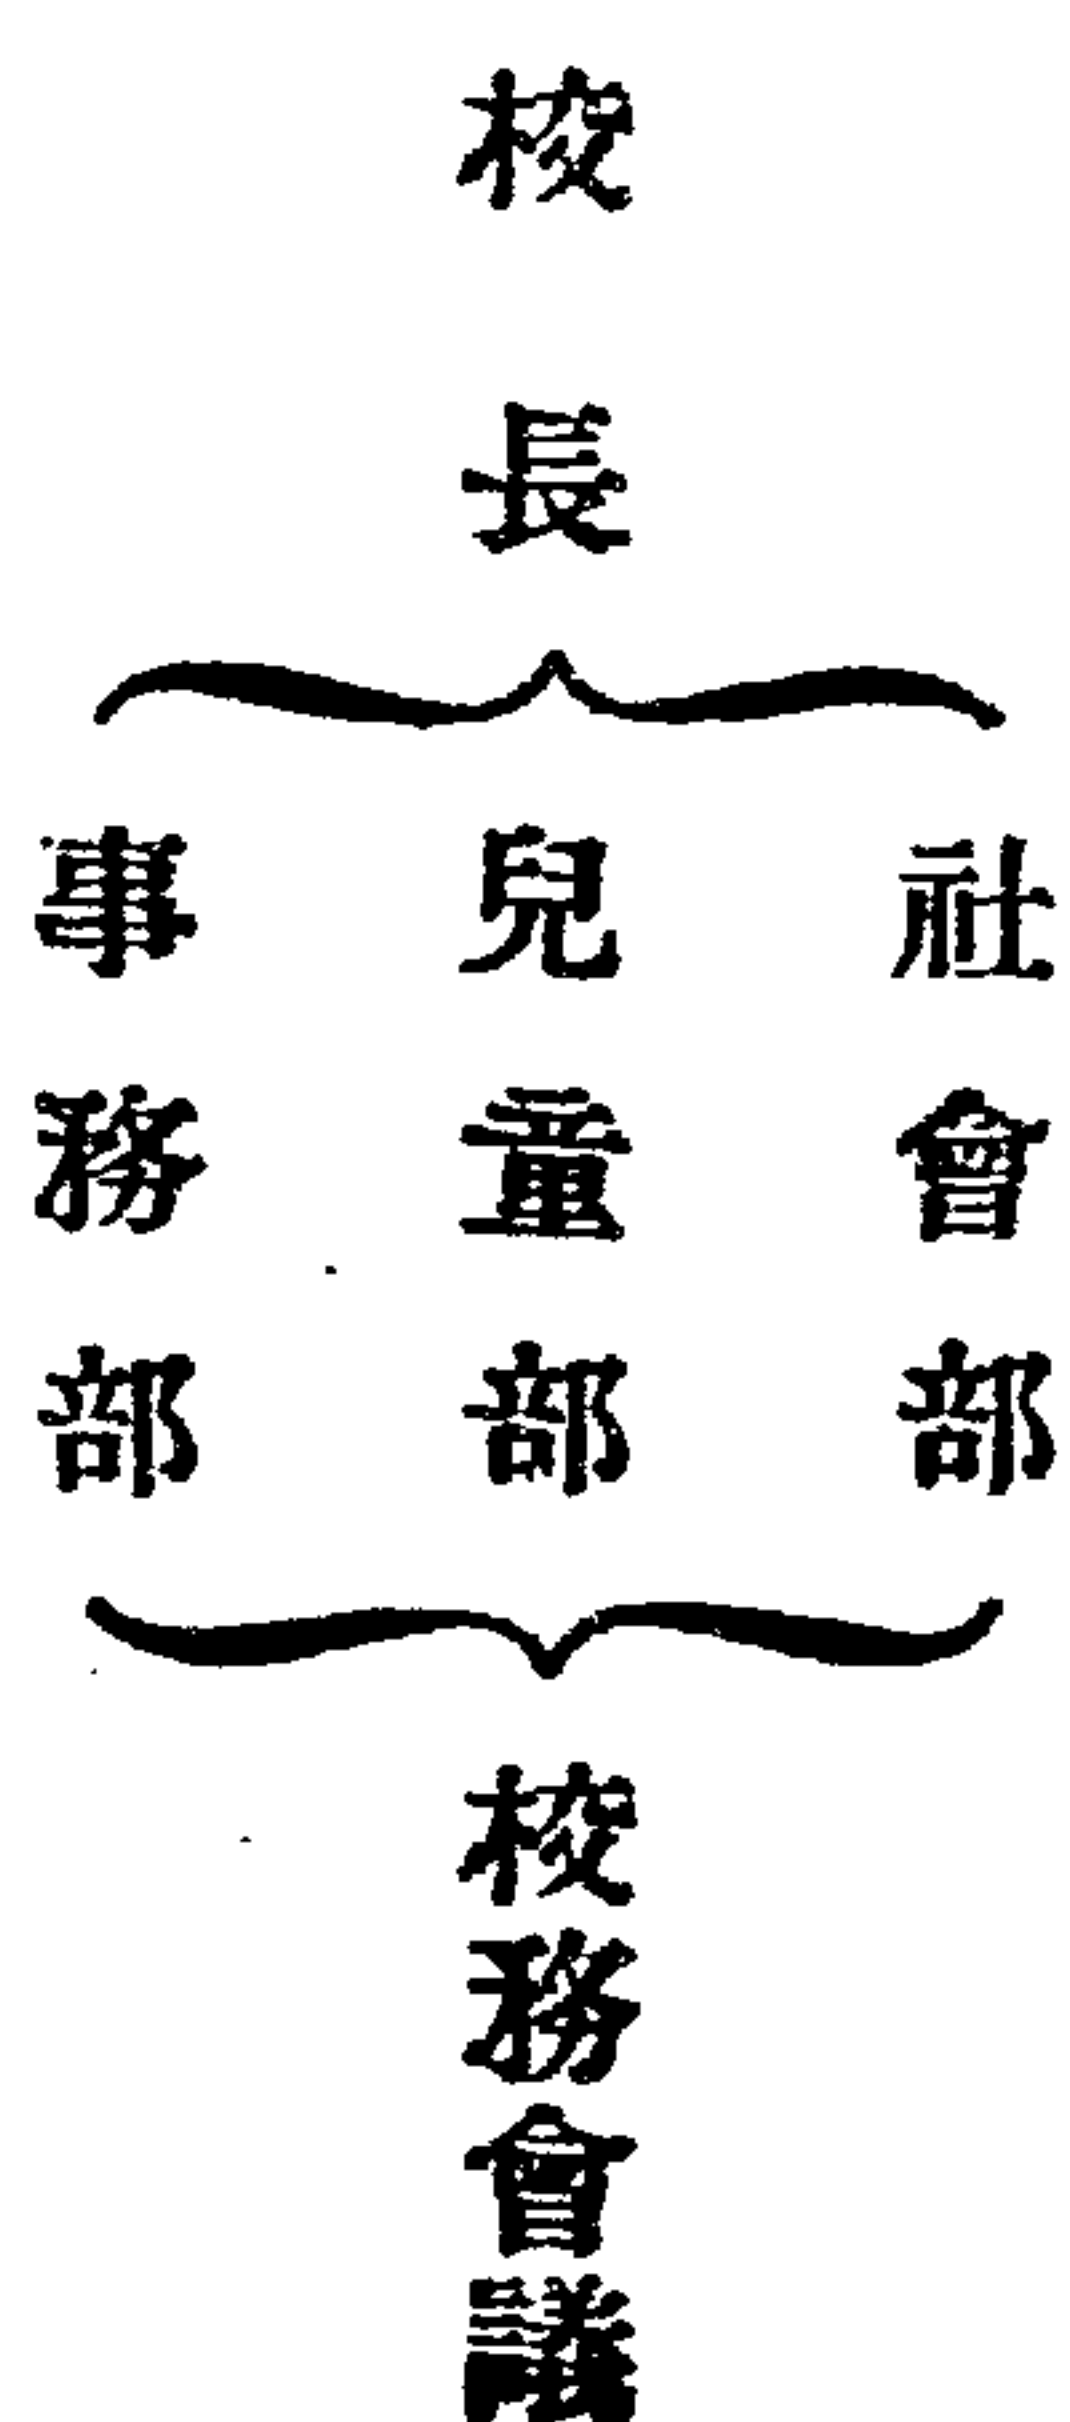 校長
社會部
兒童部
事務部
校務會議